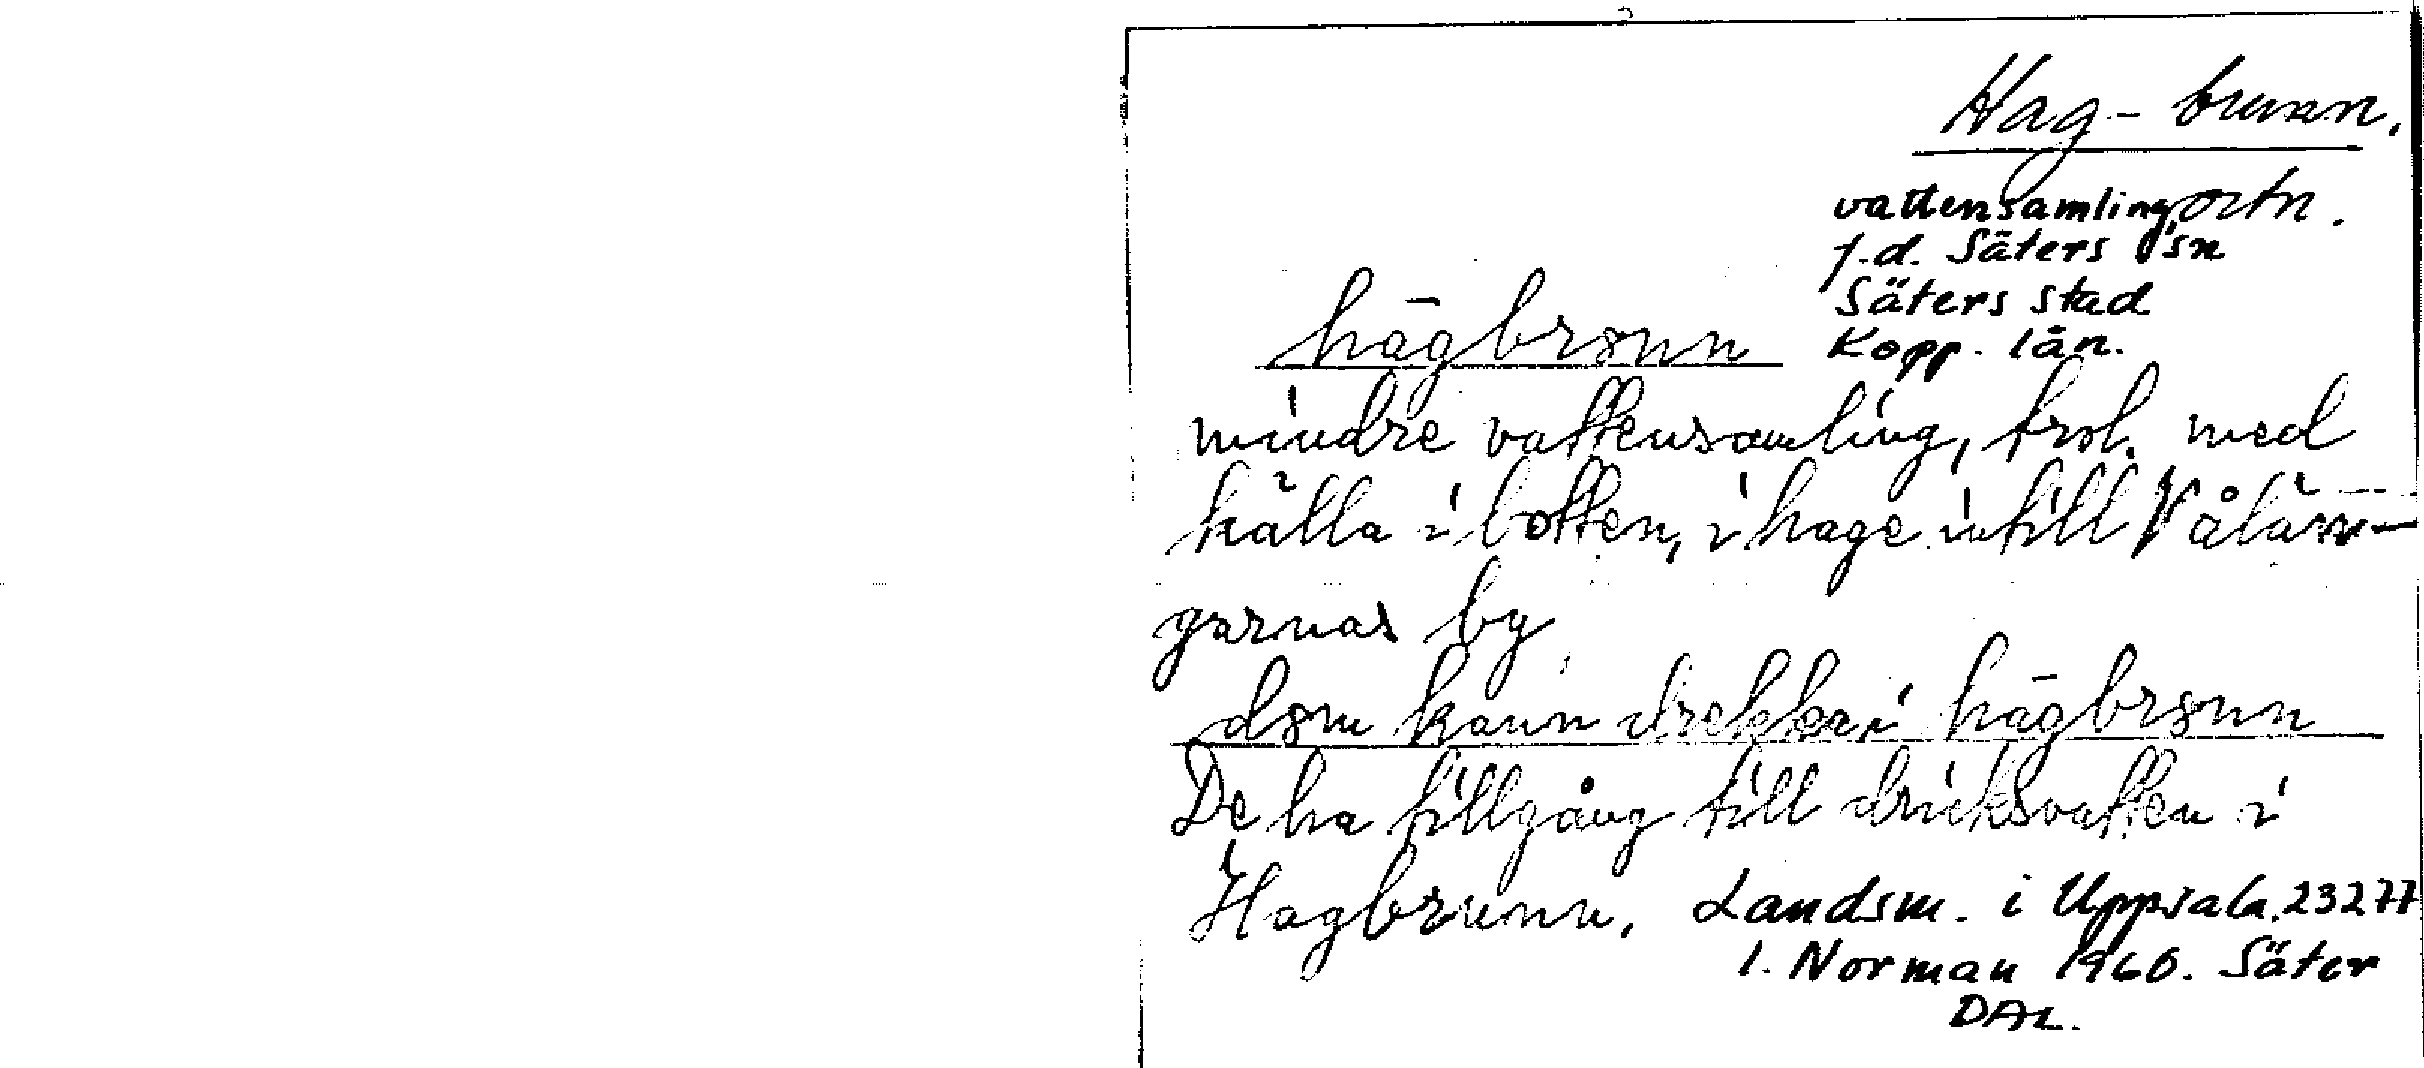 Hag-brunn.
vattensamling, ortn.
f.d. Säters sn
Säters stad
hāgbrɷnn Kopp. län.
mindre vattensamling, trol. med
källa i botten, i hage intill
garnas by
dɷm
hāgbrɷnn
De ha tillgång till dricksvatten i
Hagbrunn. Landsm. i Uppsala. 23277
I. Norman 1960. Säter
DAL.